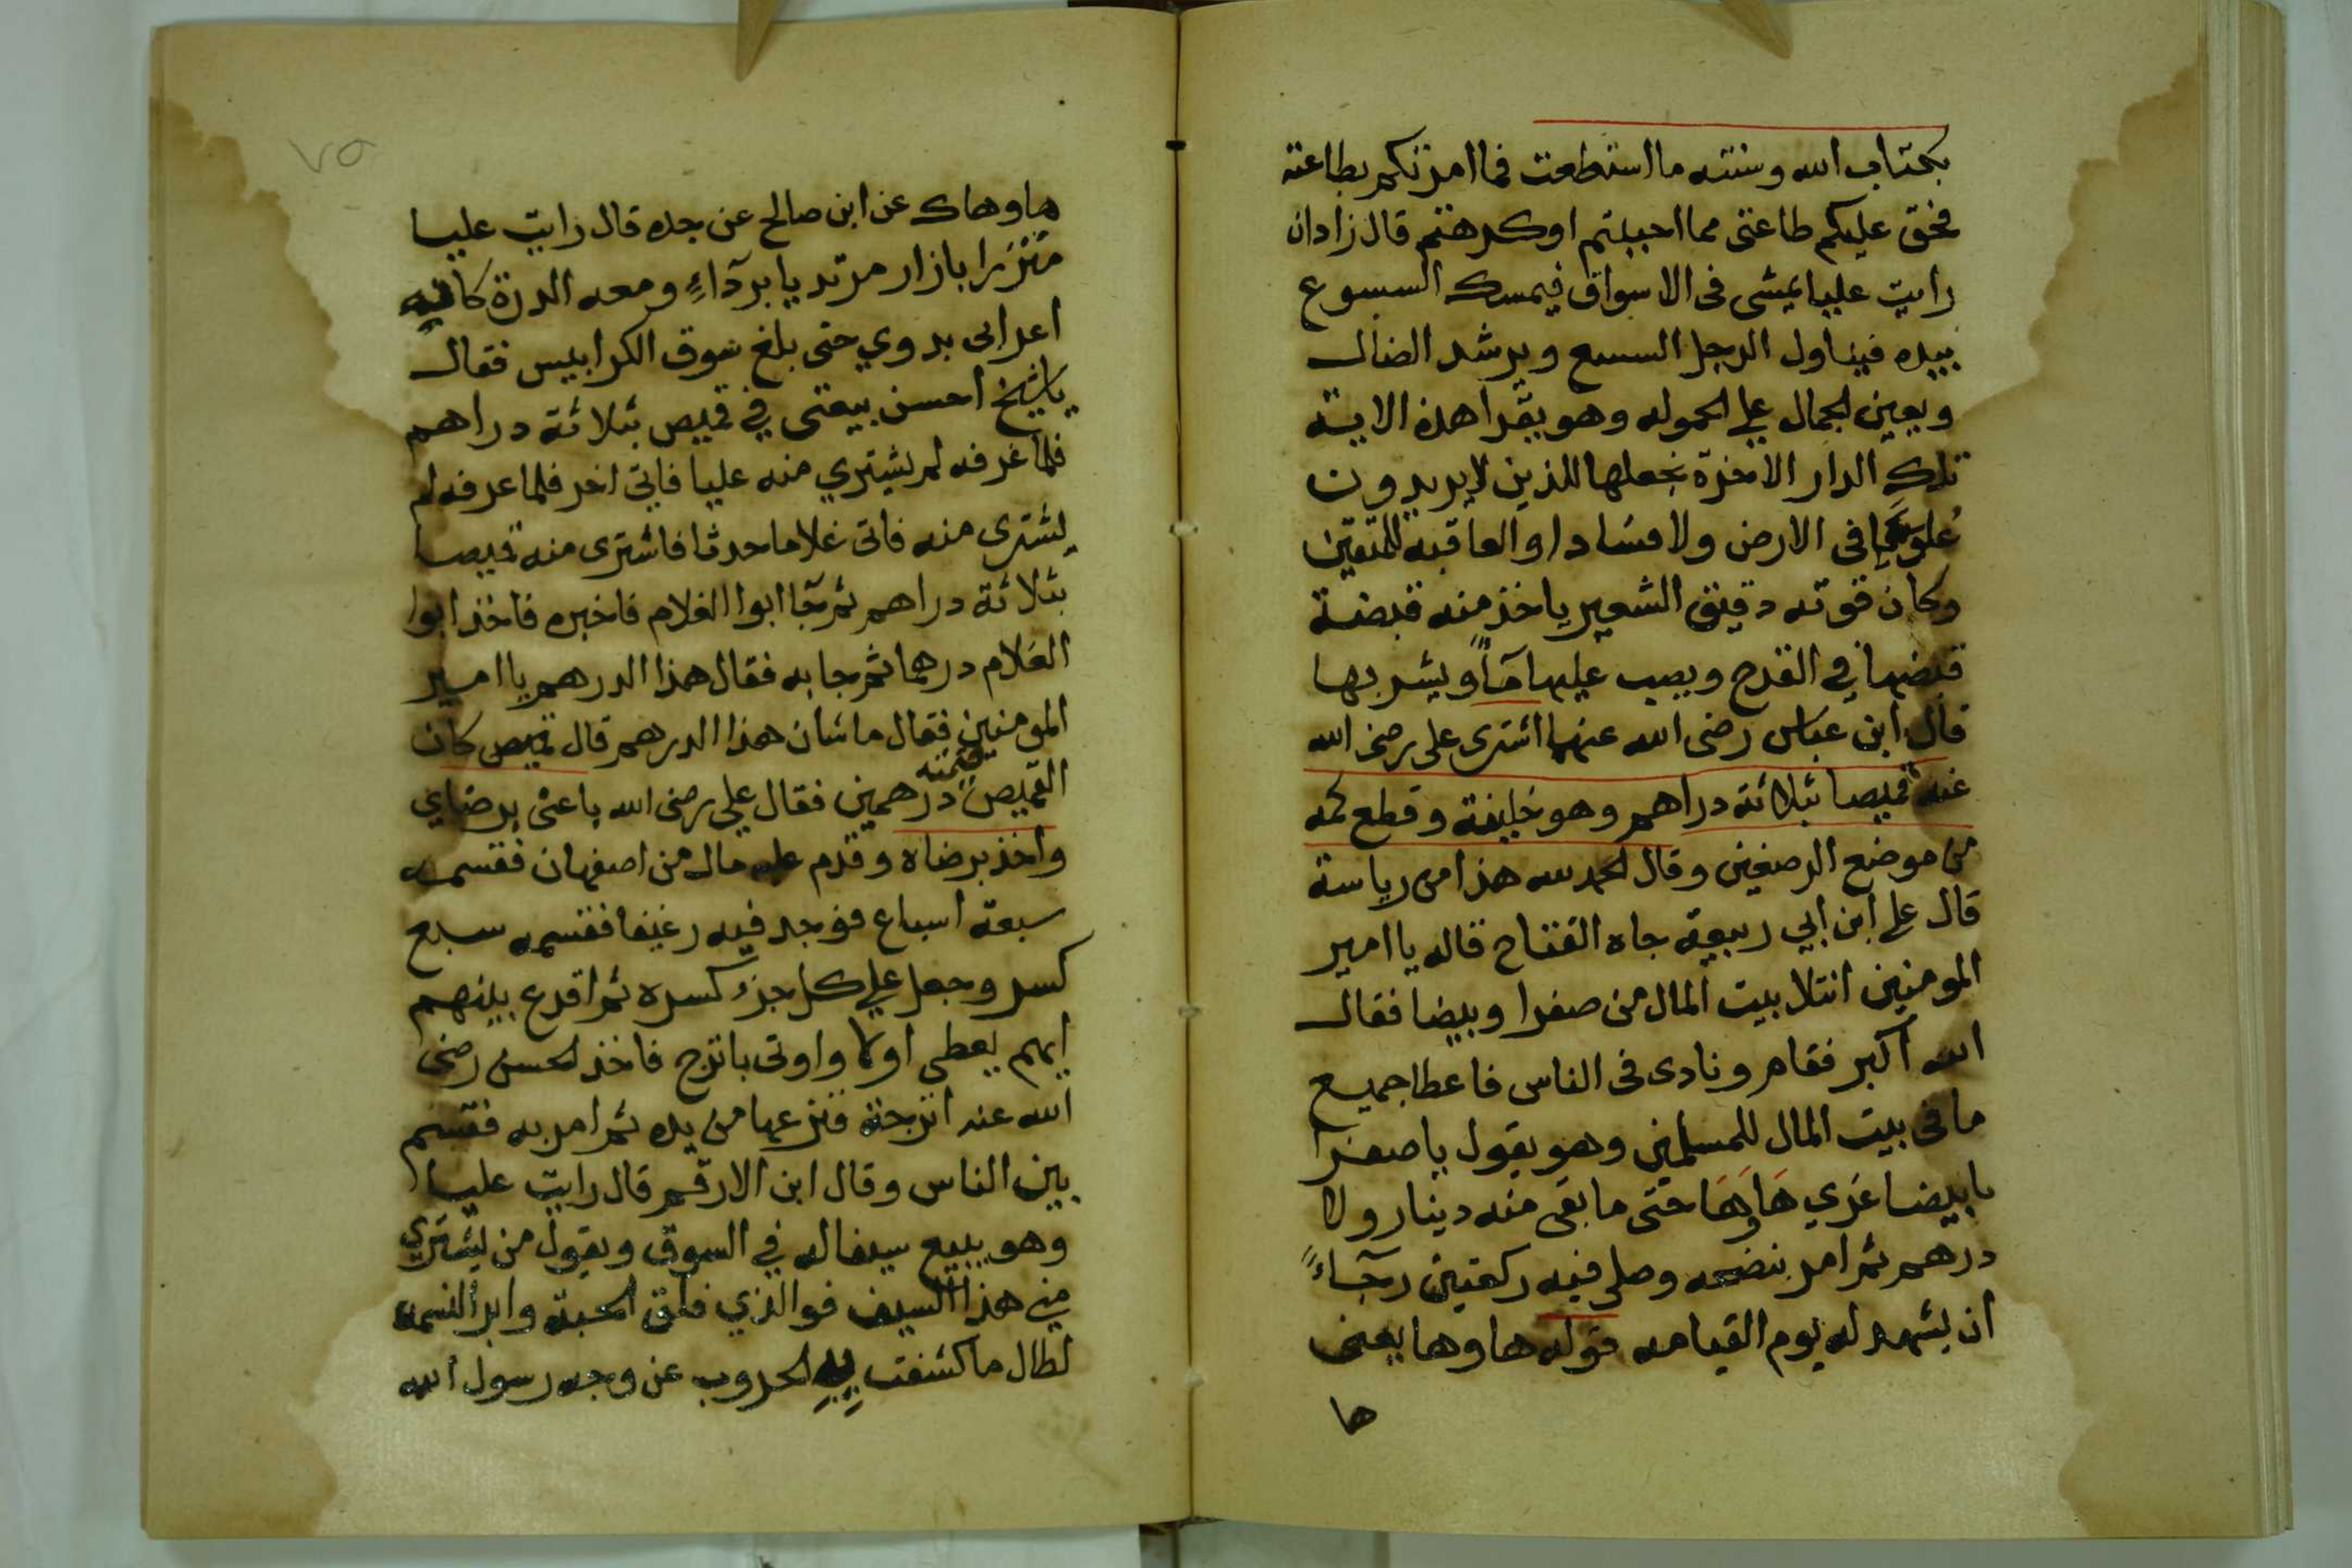 بكتاب الله وسنته ما استطعت فما امرتكم بطاعته
فحق عليكم طاعتى مما احببتم او كرهتم قال زادان
رايت عليا يمشى فى الاسواق فيمسك السسوع
بيده فيناول الرجل السسع ويرشد الضال
ويعين الجمال على الحموله وهو يقرا هذه الاية
تلك الدار الاخرة نجعلها للذين لا يريدون
علوا فى الارض ولا فسادا والعاقبه للمتقين
وكان قوته دقيق الشعير ياخذ منه قبضة
قبضها في القدح ويصب عليها مآأ ويشربها
قال ابن عباس رضى الله عنهما اشترى على رضى الله
عنه قميصا بثلاثة دراهم وهو خليفة وقطع كمه
من موضع الرصغين وقال الحمد لله هذا من رياسة
قال على ابن ابي ربيعة جاه الفتاح قاله يا امير
المومنين انتلا بيت المال من صفرا وبيضا فقال
الله اكبر فقام ونادى فى الناس فاعطا جميع
ما فى بيت المال للمسلمين وهو يقول يا صفرا
يا بيضا غري هَا وهَا حتى ما بقى منه دينار ولا
درهم ثم امر بنضحه وصلى فيه ركعتين رجآءً
ان يشهد له يوم القيامه قوله ها وها يعنى
ها
٧٥
ها وهاك عن ابن صالح عن جده قال رايت عليا
متزرا بازار مرتديا بردآءٍ ومعه الدرة كانه
اعرابى بدوي حتى بلغ سوق الكرابيس فقال
يا شيخ احسن بيعتى في قميص بثلاثة دراهم
فلما عرفه لم يشتري منه عليا فاتى اخر فلما عرفه لم
يشترى منه فاتى غلاما حدثا فاشترى منه قميصا
بثلاثة دراهم ثم جآ ابوا الغلام فاخبره فاخذ ابوا
الغلام درهما ثم جا به فقال هذا الدرهم يا امير
المومنين فقال ما شان هذا الدرهم قال قميص كان
القميص قيمته درهمين فقال علي رضى الله باعنى برضاي
واخذ برضاه وقدم عليه مال من اصفهان فقسمه
سبعة اسباع فوجد فيه رغيفا فقسمه سبع
كسر وجعل علي كل جزء كسره ثم اقرع بينهم
ايهم يعطى اولا واوتى باترج فاخذ الحسن رضى
الله عنه اترجة فنزعها من يده ثم امر به فقسم
بين الناس وقال ابن الارقم قال رايت عليا
وهو يبيع سيفا له في السوق ويقول من يشتري
مني هذا السيف فوالذي فلق الحبة وابرا النسمه
لطال ما كشفت به الحروب عن وجه رسول الله